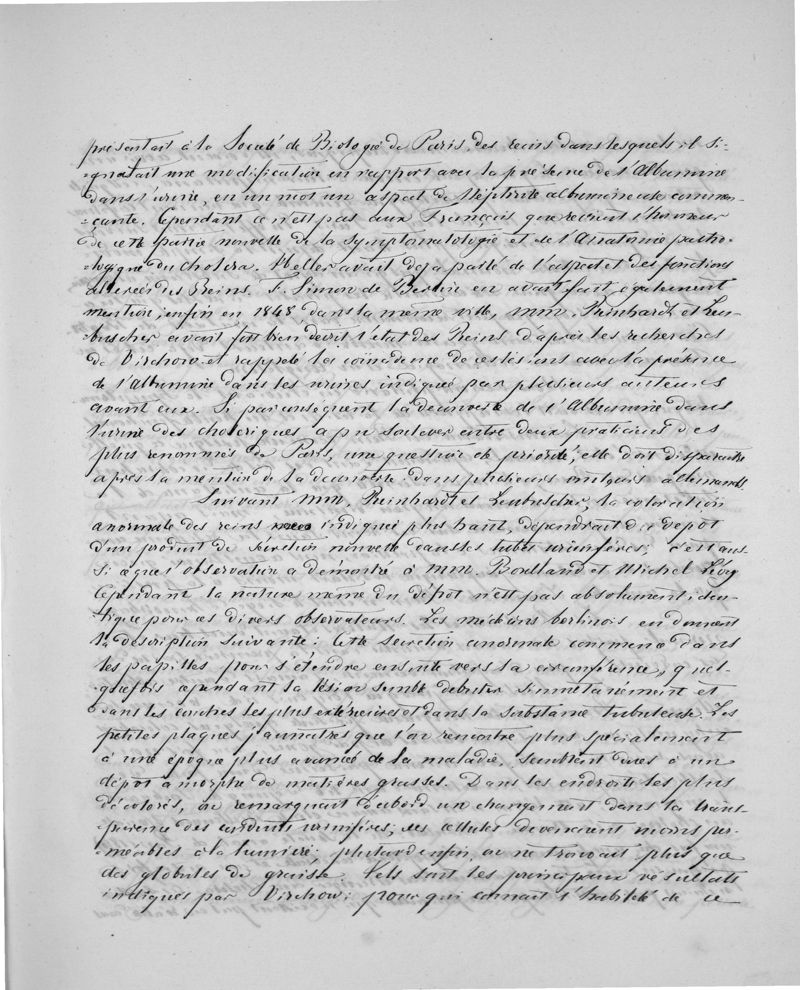 présentait à la Société de Biologie de Paris, des reins dans lesquels il si-
-gnalait une modification en rapport avec la présence de l'Albumine
dans l'urine, en un mot un aspect de Néphrite albumineuse commen-
-çante. Cependant ce n'est pas aux Français que revient l'honneur
de cette partie nouvelle de la symptomatologie et de l'Anatomie patho-
-logique du cholera. Heller avait déja parlé de l'aspect et des fonctions
alterées des Reins. F. Simon de Berlin en avait fait également
mention; enfin en 1848, dans la même ville, MM. Reinhardt et Leu-
-buscher avait fort bien decrit l'état des Reins d'après les recherches
de Virchow et rappelé la coïncidence de ces lésions avec la présence
de l'albumine dans les urines indiquée par plusieurs auteurs
avant eux. Si par conséquent la decouverte de l'Albumine dans
l'urine des choleriques a pu soulever entre deux praticiens des
plus renommés de Paris, une question de priorité, elle doit disparaître
après la mention de la decouverte dans plusieurs ouvrages allemands
Suivant MM. Reinhardt et Leubuscher, la coloration
anormale des reins indiquée plus haut, dépendrait du dépôt
d'un produit de sécrétion nouvelle dans les tubes urinifères; c'est aus-
si ce que l'observation a démontré à MM. Boulland et Michel Lévy
Cependant la nature même du dépôt n'est pas absolument iden-
-tique pour ces divers observateurs. Les médecins berlinois en donnent
la description suivante: Cette secretion anormale commence dans
les papilles pour s'étendre ensuite vers la circonférence, quel-
-quefois cependant la lésion semble debuter simultanément et
dans les couches les plus extérieures et dans la substance tubuleuse. Les
petites plaques jaunâtres que l'on rencontre plus spécialement
à une époque plus avancée de la maladie, semblent dues à un
dépôt amorphe de matières grasses. Dans les endroits les plus
décolorés, on remarquait d'abord un changement dans la trans-
-parence des conduits urinifères; les cellules devenaient moins per-
-méables à la lumière; plus tard enfin, on ne trouvait plus que
des globules de graisse. Tels sont les principaux résultats
indiqués par Virchow; pour qui connait l'habileté de ce